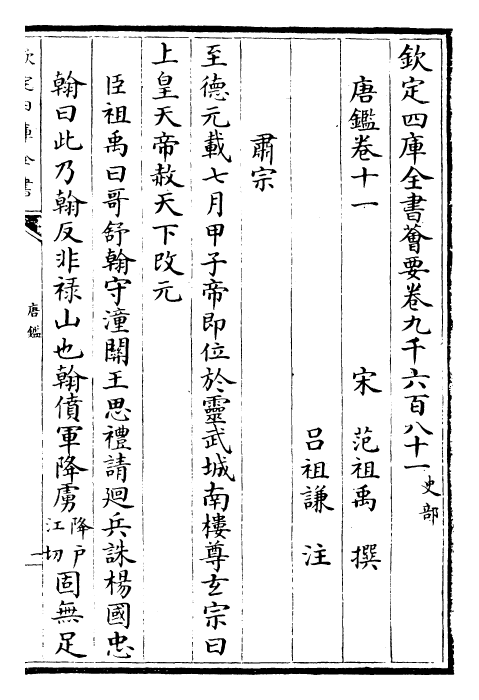 欽定四庫全書薈要卷九千六百八十一史部
唐鑑卷十一　宋　范祖禹　撰
呂祖謙　注
肅宗
至德元載七月甲子帝即位於靈武城南樓尊玄宗曰
上皇天帝赦天下改元
臣祖禹曰哥舒翰守潼關王思禮請廻兵誅楊國忠
翰曰此乃翰反非祿山也翰僨軍降虜降戶江切固無足
欽定四庫全書
唐鑑